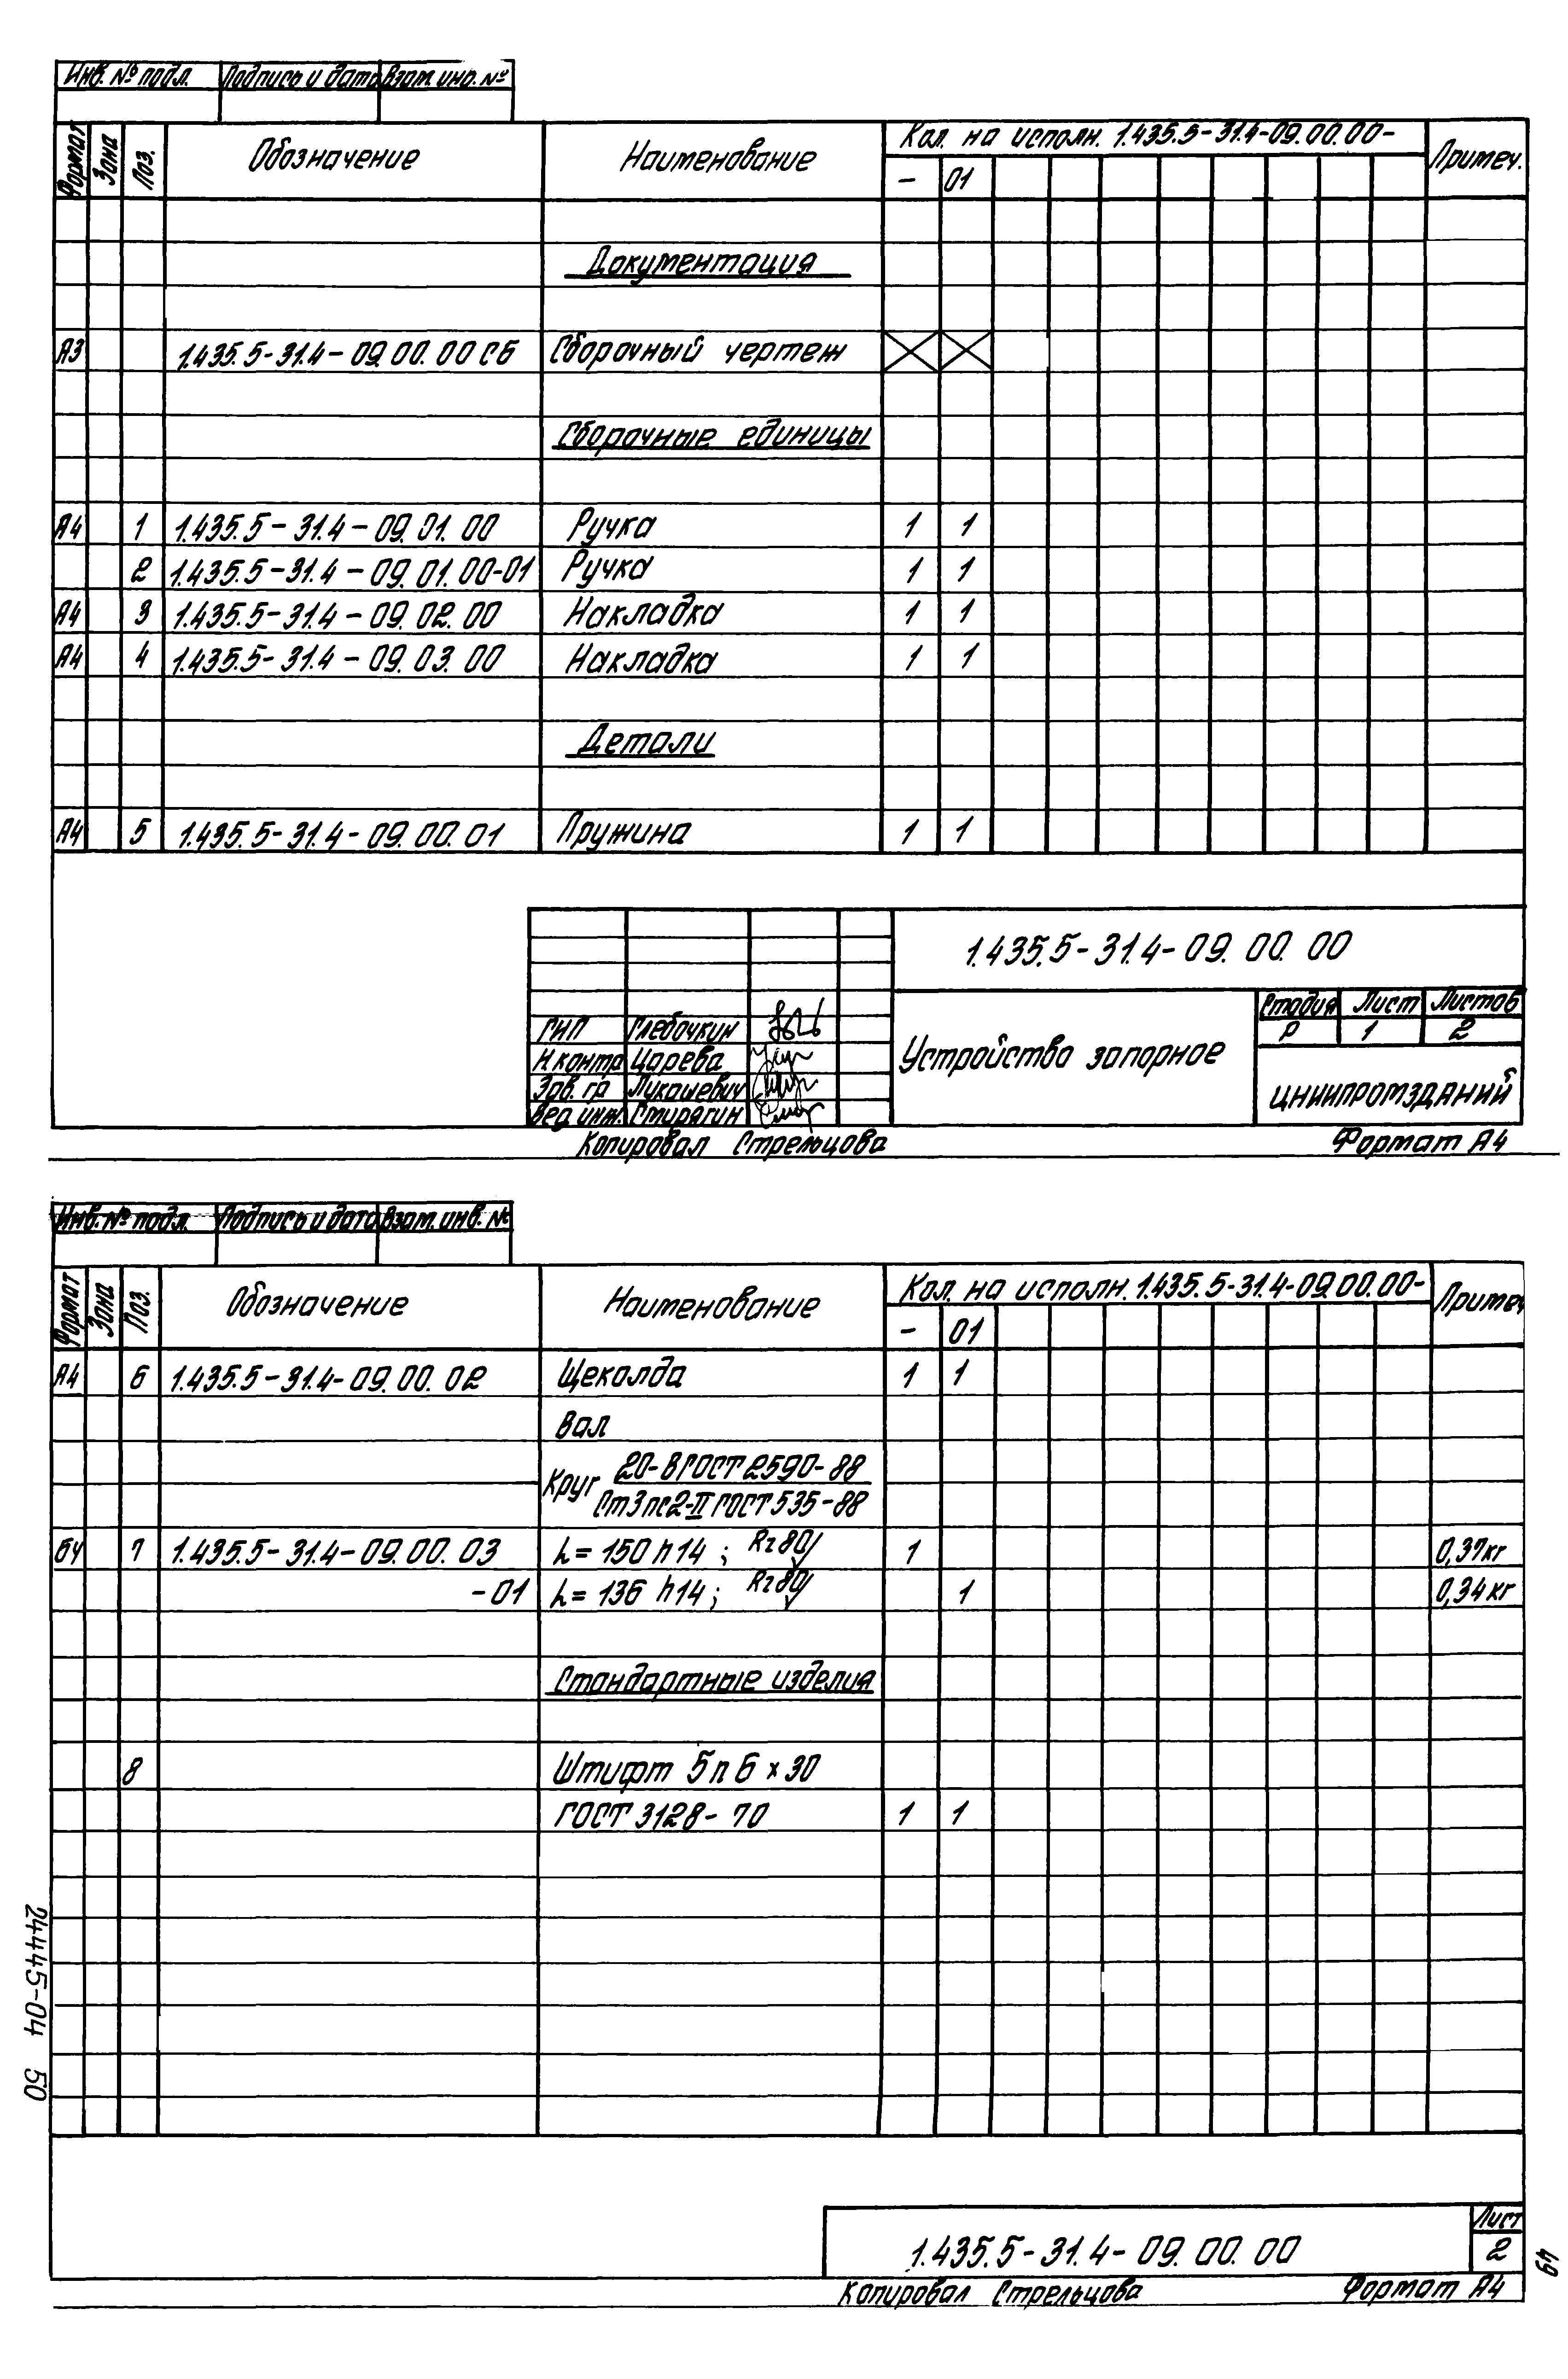 Инв. № подл. Подпись и дата Взам. инв. №
Формат Зона Поз. Обозначение Наименование Кол. на исполн. 1.435.5-31.4-09.00.00- Примеч.
- 01
Документация
А3 1.435.5-31.4-09.00.00 СБ Сборочный чертеж
Сборочные единицы
А4 1 1.435.5-31.4-09.01.00 Ручка 1 1
2 1.435.5-31.4-09.01.00-01 Ручка 1 1
А4 3 1.435.5-31.4-09.02.00 Накладка 1 1
А4 4 1.435.5-31.4-09.03.00 Накладка 1 1
Детали
А4 5 1.435.5-31.4-09.00.01 Пружина 1 1
1.435.5-31.4-09.00.00
ГИП Глебочкин
Н.контр Царева
Зав. гр Лукашевич
Вед. инж. Стирягин
Устройство запорное
Стадия Лист Листов
Р 1 2
ЦНИИПРОМЗДАНИЙ
Копировал Стрельцова Формат А4
Инв. № подл. Подпись и дата Взам. инв. №
Формат Зона Поз. Обозначение Наименование Кол. на исполн. 1.435.5-31.4-09.00.00- Примеч
- 01
А4 6 1.435.5-31.4-09.00.02 Щеколда 1 1
Вал
Круг 20-В ГОСТ 2590-88
Ст3пс2-II ГОСТ 535-88
БЧ 7 1.435.5-31.4-09.00.03 L=150 h14; Rz80 1 0,37кг
-01 L=136 h14; Rz80 1 0,34кг
Стандартные изделия
8 Штифт 5п6×30
ГОСТ 3128-70 1 1
1.435.5-31.4-09.00.00
Лист
2
Копировал Стрельцова Формат А4
24445-04 50
49